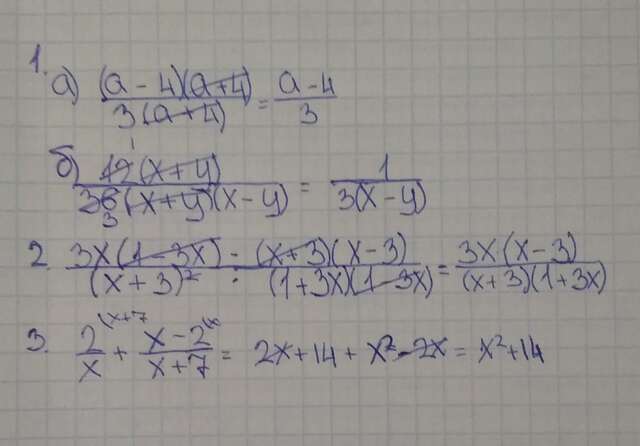 1.
а) (a - 4)(a + 4) / 3(a + 4) = a - 4 / 3
б) 12(x + y) / 36(x + y)(x - y) = 1 / 3(x - y)
1
3
2. 3x(1 - 3x) / (x + 3)² : (x + 3)(x - 3) / (1 + 3x)(1 - 3x) = 3x(x - 3) / (x + 3)(1 + 3x)
3. 2(x+7 / x + x - 2(x / x + 7 = 2x + 14 + x² - 2x = x² + 14